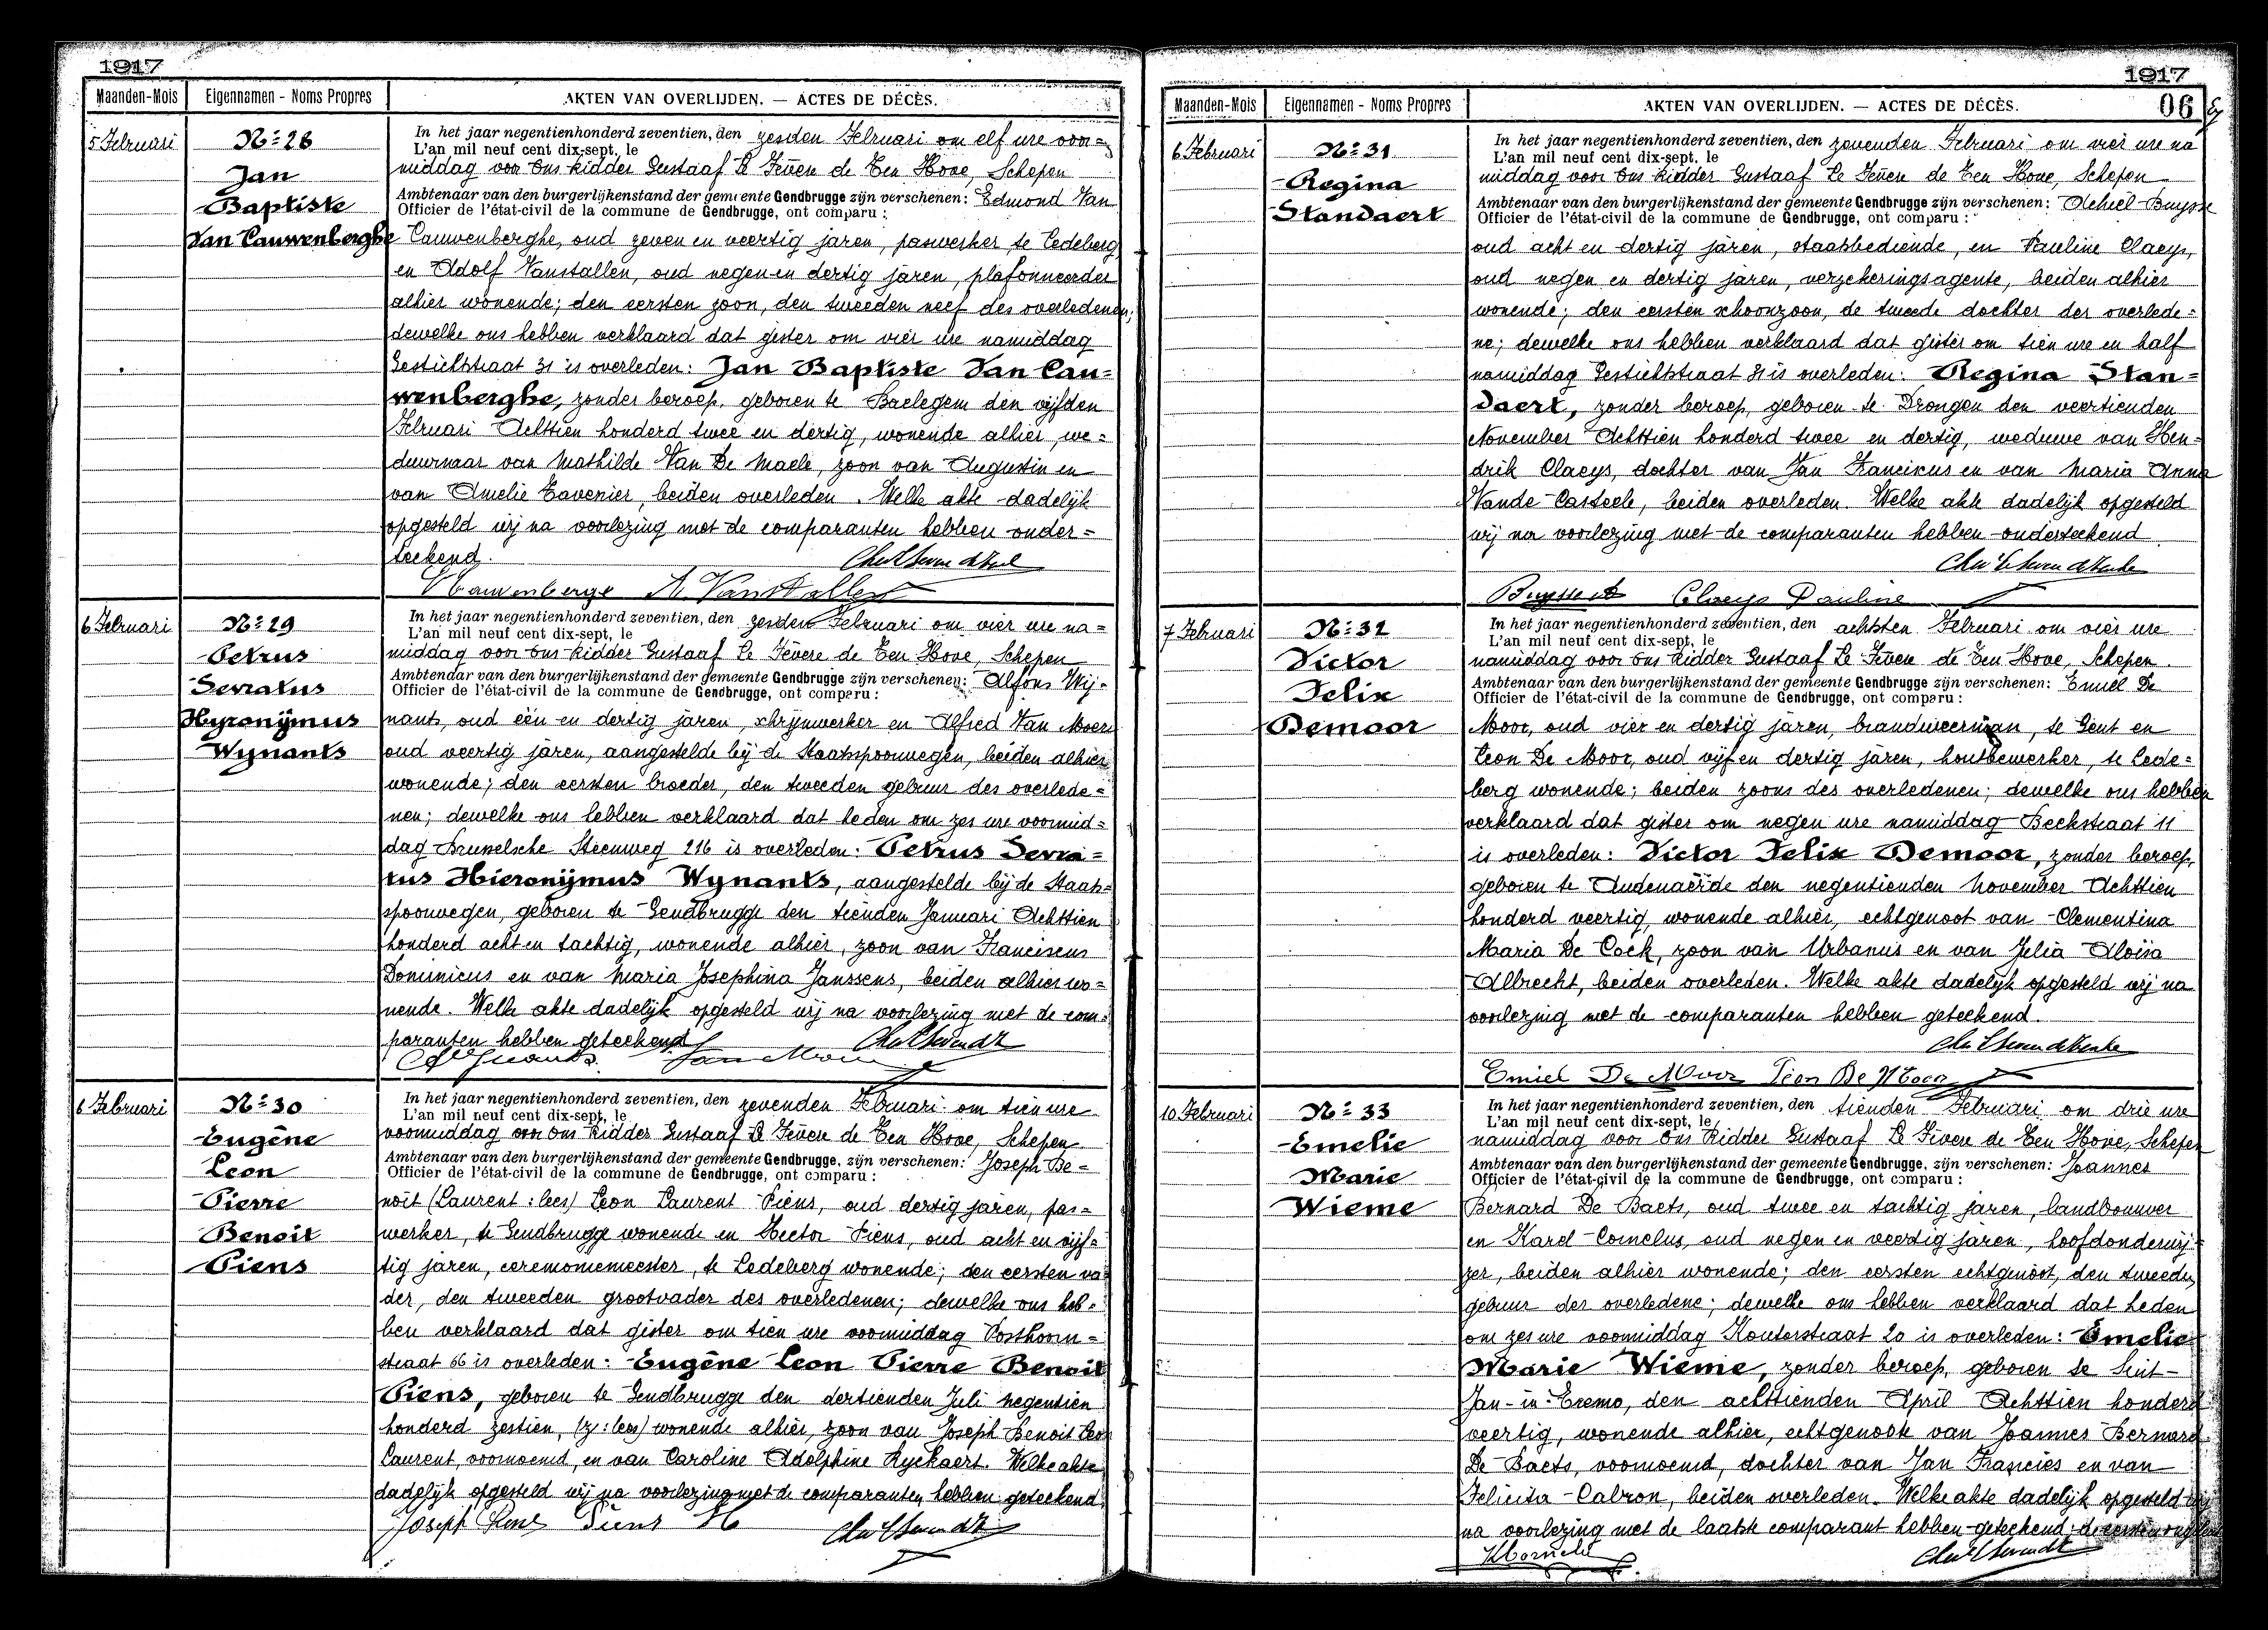 1917
Maanden-Mois Eigennamen - Noms Propres AKTEN VAN OVERLIJDEN. — ACTES DE DÉCÈS.
5 Februari
Nº 28
Jan
Baptiste
Van Cauwenberghe
In het jaar negentienhonderd zeventien, den zesden Februari om elf ure voor=
L'an mil neuf cent dix-sept, le
middag voor Ons Ridder Gustaaf Le Fèvere de Ten Hove, Schepen
Ambtenaar van den burgerlijkenstand der gemeente Gendbrugge zijn verschenen: Edmond Van
Officier de l'état-civil de la commune de Gendbrugge, ont comparu :
Cauwenberghe, oud zeven en veertig jaren, paswerker te Ledeberg
en Adolf Vanstallen, oud negen en dertig jaren, plafonneerder
alhier wonende; den eersten zoon, den tweeden neef des overledenen;
dewelke ons hebben verklaard dat gister om vier ure namiddag
Gestichtstraat 31 is overleden: Jan Baptiste Van Cau=
wenberghe, zonder beroep, geboren te Baelegem den vijfden
Februari Achttien honderd twee en dertig, wonende alhier, we=
duwnaar van Mathilde Van De Maele, zoon van Augustin en
van Amelie Tavenier, beiden overleden. Welke akte dadelijk
opgesteld wij na voorlezing met de comparanten hebben onder=
teekend.
VCauwenberge A. Vanstallen
6 Februari
Nº 29
Petrus
Servatus
Hyronijmus
Wynants
In het jaar negentienhonderd zeventien, den zesden Februari om vier ure na=
L'an mil neuf cent dix-sept, le
middag voor Ons Ridder Gustaaf Le Fèvere de Ten Hove, Schepen
Ambtenaar van den burgerlijkenstand der gemeente Gendbrugge zijn verschenen: Alfons Wij=
Officier de l'état-civil de la commune de Gendbrugge, ont comparu :
nants, oud één en dertig jaren, schrijnwerker en Alfred Van Moer
oud veertig jaren, aangestelde bij de Staatspoorwegen, beiden alhier
wonende; den eersten broeder, den tweeden gebuur des overlede=
nen; dewelke ons hebben verklaard dat heden om zes ure voormid=
dag Brusselsche Steenweg 216 is overleden: Petrus Serva=
tus Hieronijmus Wynants, aangestelde bij de Staats=
spoorwegen, geboren te Gendbrugge den tienden Januari Achttien
honderd acht en tachtig, wonende alhier, zoon van Franciscus
Dominicus en van Maria Josephina Janssens, beiden alhier wo=
nende. Welke akte dadelijk opgesteld wij na voorlezing met de com=
paranten hebben geteekend
6 Februari
Nº 30
Eugêne
Leon
Pierre
Benoit
Piens
In het jaar negentienhonderd zeventien, den zevenden Februari om tien ure
L'an mil neuf cent dix-sept, le
voormiddag voor Ons Ridder Gustaaf Le Fèvere de Ten Hove, Schepen
Ambtenaar van den burgerlijkenstand der gemeente Gendbrugge, zijn verschenen: Joseph Be=
Officier de l'état-civil de la commune de Gendbrugge, ont comparu :
noit (Laurent: lees) Leon Laurent Piens, oud dertig jaren, pas=
werker, te Gendbrugge wonende en Hector Piens, oud acht en vijf=
tig jaren, ceremoniemeester, te Ledeberg wonende; den eersten va=
der, den tweeden grootvader des overledenen; dewelke ons heb=
ben verklaard dat gister om tien ure voormiddag Posthoorn=
straat 66 is overleden: Eugêne Leon Pierre Benoit
Piens, geboren te Gendbrugge den dertienden Juli negentien
honderd zestien, (z: lees) wonende alhier, zoon van Joseph Benoit Leon
Laurent, voornoemd, en van Caroline Adolphine Ryckaert. Welke akte
dadelijk opgesteld wij na voorlezing met de comparanten hebben geteekend.
Joseph Piens Piens H
1917
Maanden-Mois Eigennamen - Noms Propres AKTEN VAN OVERLIJDEN. — ACTES DE DÉCÈS. 06
6 Februari
Nº 31
Regina
Standaert
In het jaar negentienhonderd zeventien, den zevenden Februari om vier ure na
L'an mil neuf cent dix-sept, le
middag voor Ons Ridder Gustaaf Le Fèvere de Ten Hove, Schepen
Ambtenaar van den burgerlijkenstand der gemeente Gendbrugge zijn verschenen: Achiel Buysse
Officier de l'état-civil de la commune de Gendbrugge, ont comparu :
oud acht en dertig jaren, staatsbediende, en Pauline Claeys,
oud negen en dertig jaren, verzekeringsagente, beiden alhier
wonende; den eersten schoonzoon, de tweede dochter der overlede=
ne; dewelke ons hebben verklaard dat gister om tien ure en half
namiddag Gestichtstraat 31 is overleden: Regina Stan=
daert, zonder beroep, geboren te Drongen den veertienden
November Achttien honderd twee en dertig, weduwe van Hen=
drik Claeys, dochter van Jan Franciscus en van Maria Anna
Vande Casteele, beiden overleden. Welke akte dadelijk opgesteld
wij na voorlezing met de comparanten hebben onderteekend
Buysse A Claeys Pauline
7 Februari
Nº 32
Victor
Felix
Demoor
In het jaar negentienhonderd zeventien, den achtsten Februari om vier ure
L'an mil neuf cent dix-sept, le
namiddag voor Ons Ridder Gustaaf Le Fèvere de Ten Hove, Schepen.
Ambtenaar van den burgerlijkenstand der gemeente Gendbrugge zijn verschenen: Emiel De
Officier de l'état-civil de la commune de Gendbrugge, ont comparu :
Moor, oud vier en dertig jaren, brandweerman, te Gent en
Leon De Moor, oud vijf en dertig jaren, houtbewerker, te Lede=
berg wonende; beiden zoons des overledenen; dewelke ons hebben
verklaard dat gister om negen ure namiddag Beekstraat 11
is overleden: Victor Felix Demoor, zonder beroep,
geboren te Audenaerde den negentienden November Achttien
honderd veertig, wonende alhier, echtgenoot van Clementina
Maria De Cock, zoon van Urbanus en van Julia Aloïsa
Albrecht, beiden overleden. Welke akte dadelijk opgesteld wij na
voorlezing met de comparanten hebben geteekend.
Emiel De Moor Leon De Moor
10 Februari
Nº 33
Emelie
Marie
Wieme
In het jaar negentienhonderd zeventien, den tienden Februari om drie ure
L'an mil neuf cent dix-sept, le
namiddag voor Ons Ridder Gustaaf Le Fèvere de Ten Hove, Schepen
Ambtenaar van den burgerlijkenstand der gemeente Gendbrugge, zijn verschenen: Joannes
Officier de l'état-civil de la commune de Gendbrugge, ont comparu :
Bernard De Baets, oud twee en tachtig jaren, landbouwer
en Karel Cornelus, oud negen en veertig jaren, hoofdonderwij=
zer, beiden alhier wonende; den eersten echtgenoot, den tweeden
gebuur der overledene; dewelke ons hebben verklaard dat heden
om zes ure voormiddag Kouterstraat 20 is overleden: Emelie
Marie Wieme, zonder beroep, geboren te Sint-
Jan-in-Eremo, den achttienden April Achttien honderd
veertig, wonende alhier, echtgenoote van Joannes Bernard
De Baets, voornoemd, dochter van Jan Francies en van
Felicita Calron, beiden overleden. Welke akte dadelijk opgesteld wij
na voorlezing met de laatste comparant hebben geteekend; de eersten